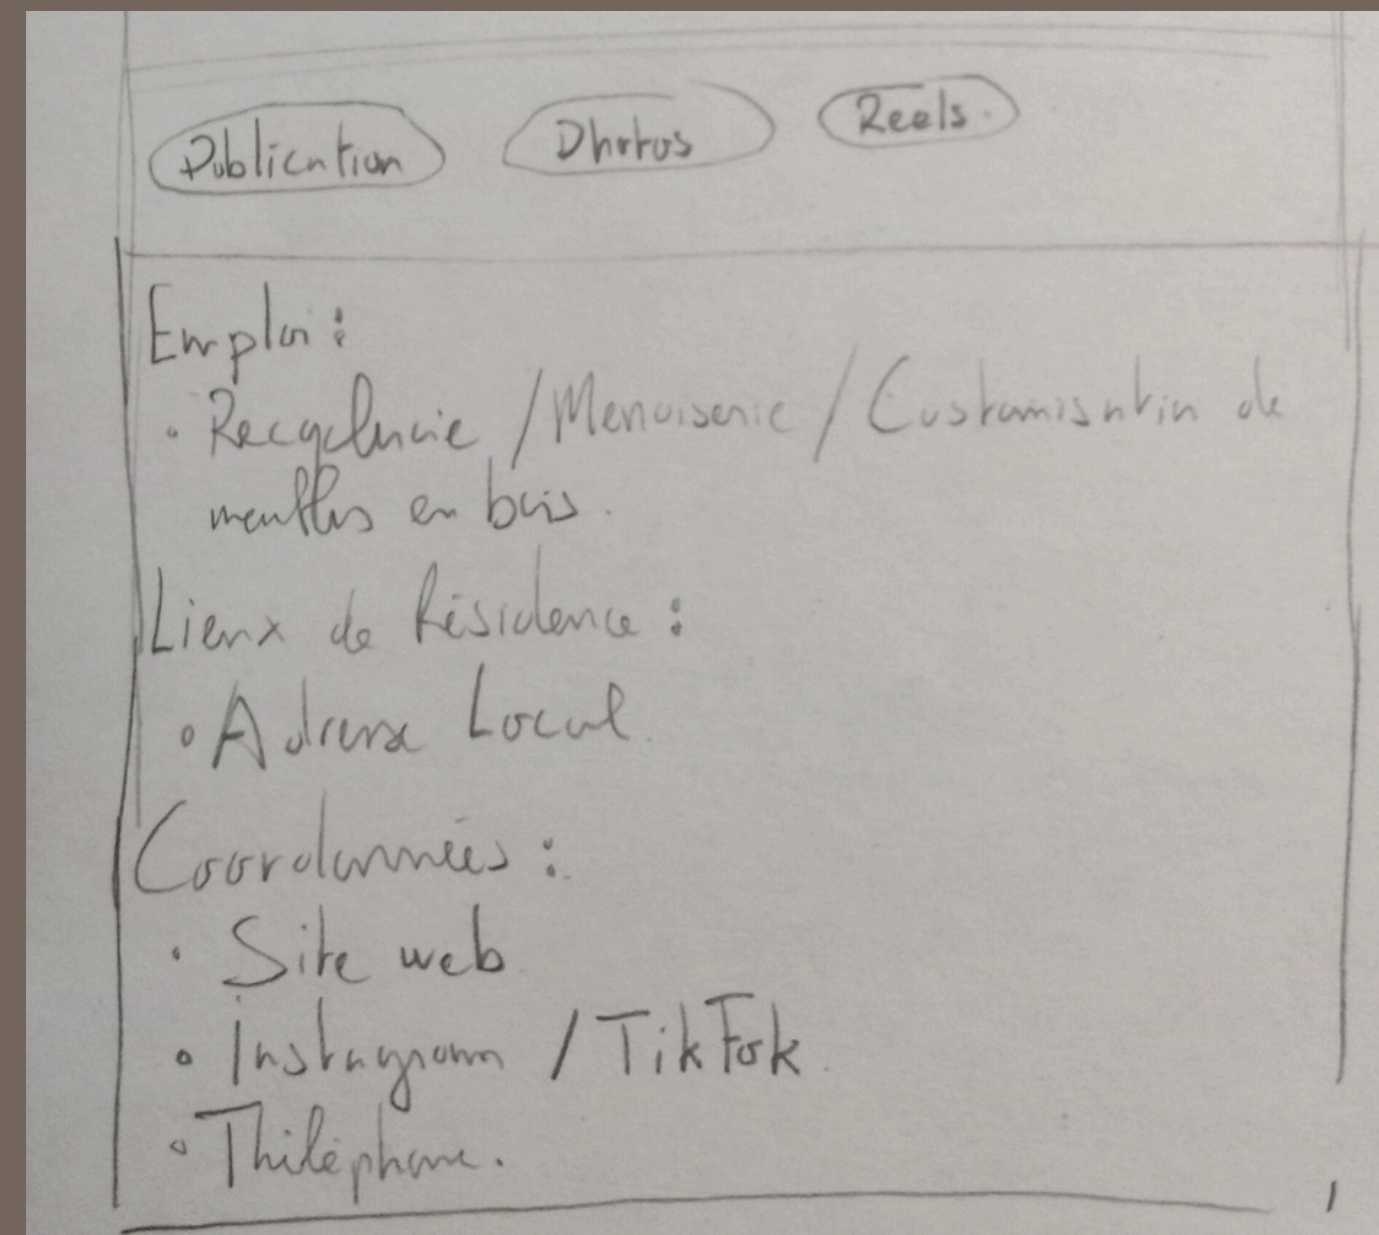 Publication Photos Reels
Emploi :
• Recyclerie / Menuiserie / Customisation de
meubles en bois.
Lieux de Résidence :
• Adresse Local.
Coordonnées :
• Site web
• Instagram / TikTok.
• Thiléphone.